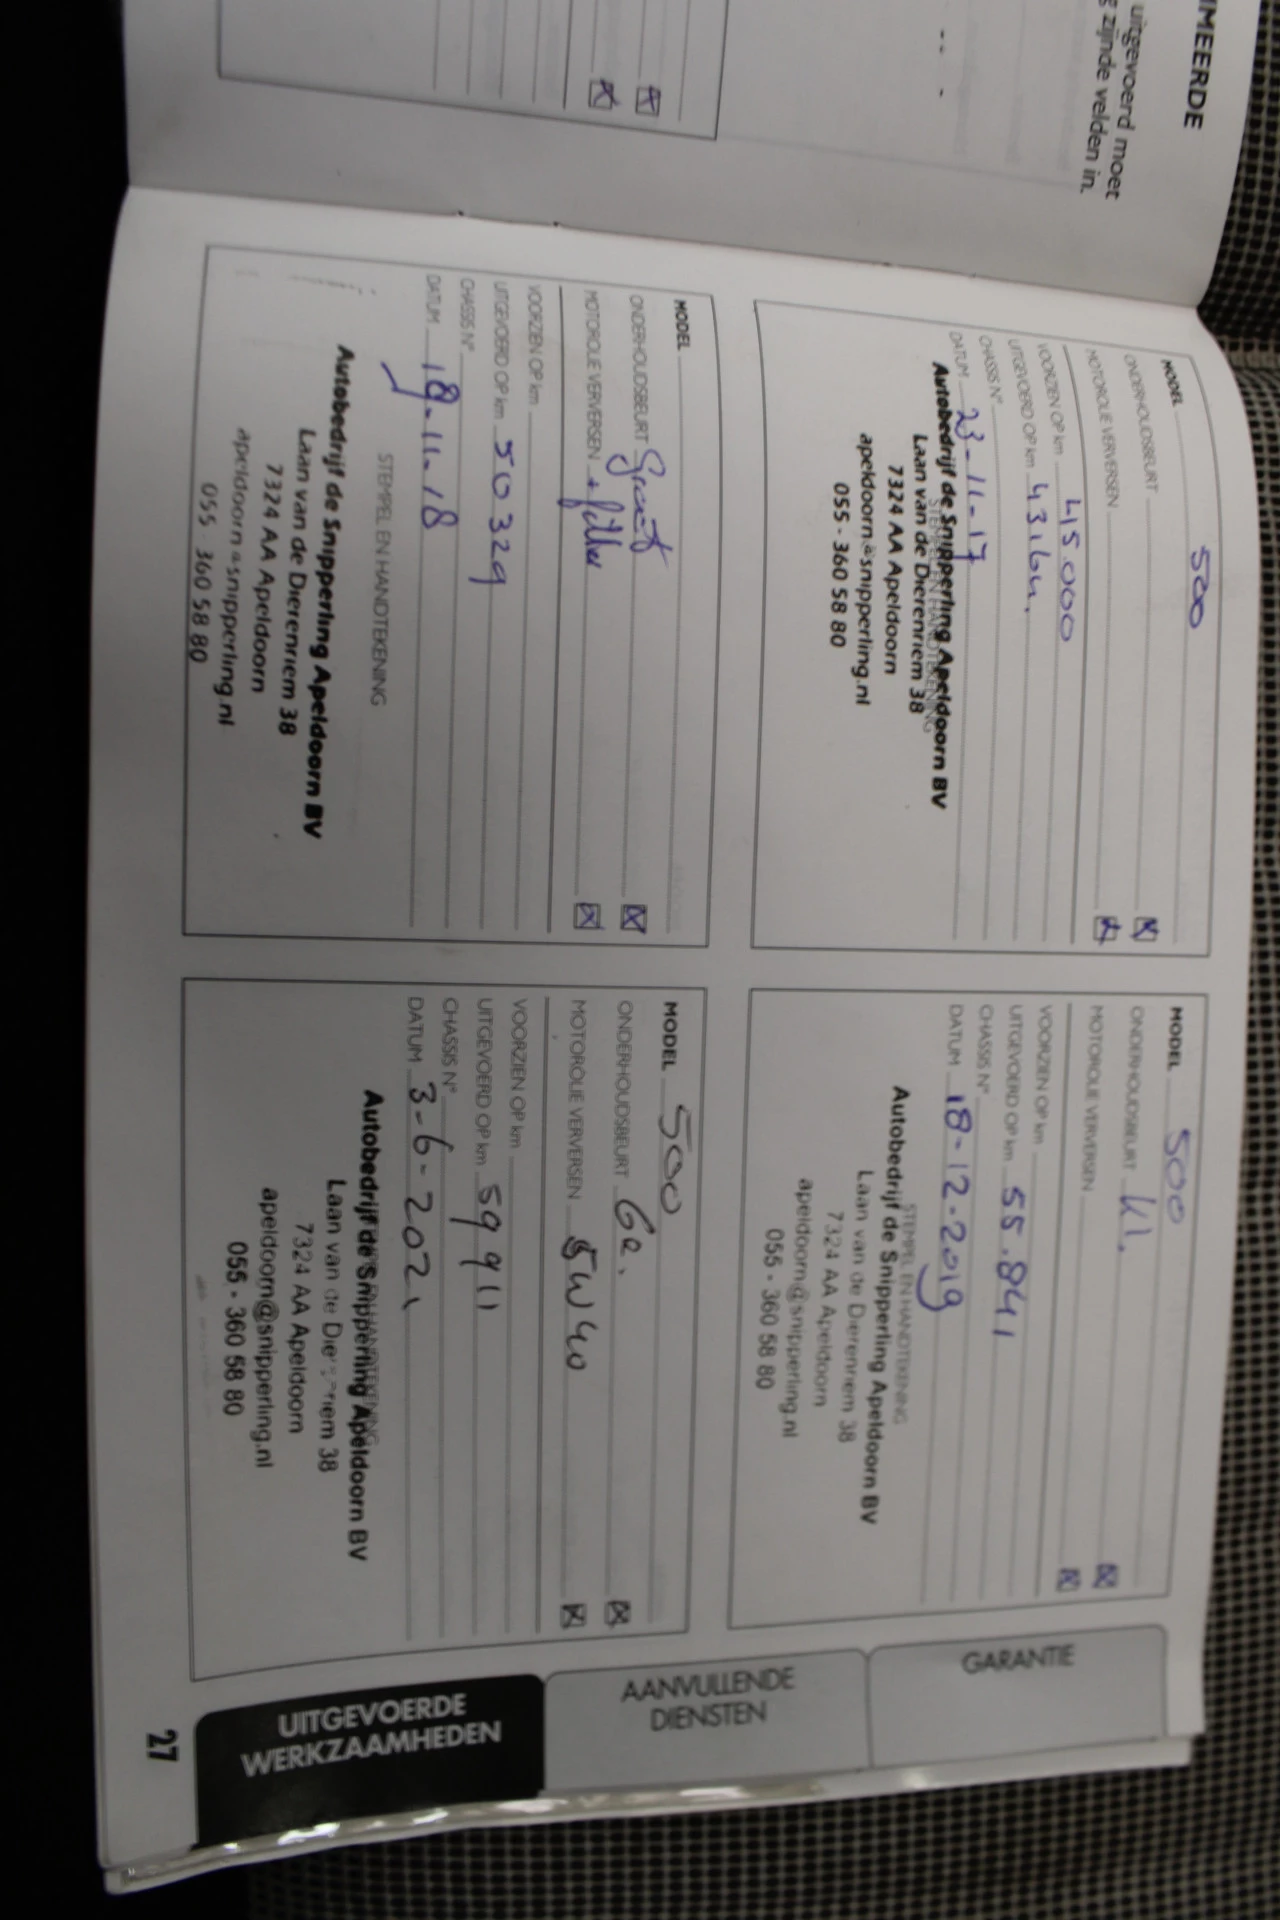 MMEERDE
uitgevoerd moet
zijnde velden in.
MODEL 500
ONDERHOUDSBEURT
MOTOROLIE VERVERSEN
VOORZIEN OP km 45.000
UITGEVOERD OP km 43164.
CHASSIS N°
DATUM 23-11-17
STEMPEL EN HANDTEKENING
Autobedrijf de Snipperling Apeldoorn BV
Laan van de Dierenriem 38
7324 AA Apeldoorn
apeldoorn@snipperling.nl
055 - 360 58 80
MODEL 500
ONDERHOUDSBEURT kl.
MOTOROLIE VERVERSEN
VOORZIEN OP km
UITGEVOERD OP km 55.841
CHASSIS N°
DATUM 18-12-2019
STEMPEL EN HANDTEKENING
Autobedrijf de Snipperling Apeldoorn BV
Laan van de Dierenriem 38
7324 AA Apeldoorn
apeldoorn@snipperling.nl
055 - 360 58 80
MODEL
ONDERHOUDSBEURT Groot
MOTOROLIE VERVERSEN + filter
VOORZIEN OP km
UITGEVOERD OP km 50329
CHASSIS N°
DATUM 19-11-18
STEMPEL EN HANDTEKENING
Autobedrijf de Snipperling Apeldoorn BV
Laan van de Dierenriem 38
7324 AA Apeldoorn
apeldoorn@snipperling.nl
055 - 360 58 80
MODEL 500
ONDERHOUDSBEURT
MOTOROLIE VERVERSEN 5W40
VOORZIEN OP km
UITGEVOERD OP km 59911
CHASSIS N°
DATUM 3-6-2021
STEMPEL EN HANDTEKENING
Autobedrijf de Snipperling Apeldoorn BV
Laan van de Dierenriem 38
7324 AA Apeldoorn
apeldoorn@snipperling.nl
055 - 360 58 80
GARANTIE
AANVULLENDE
DIENSTEN
UITGEVOERDE
WERKZAAMHEDEN
27